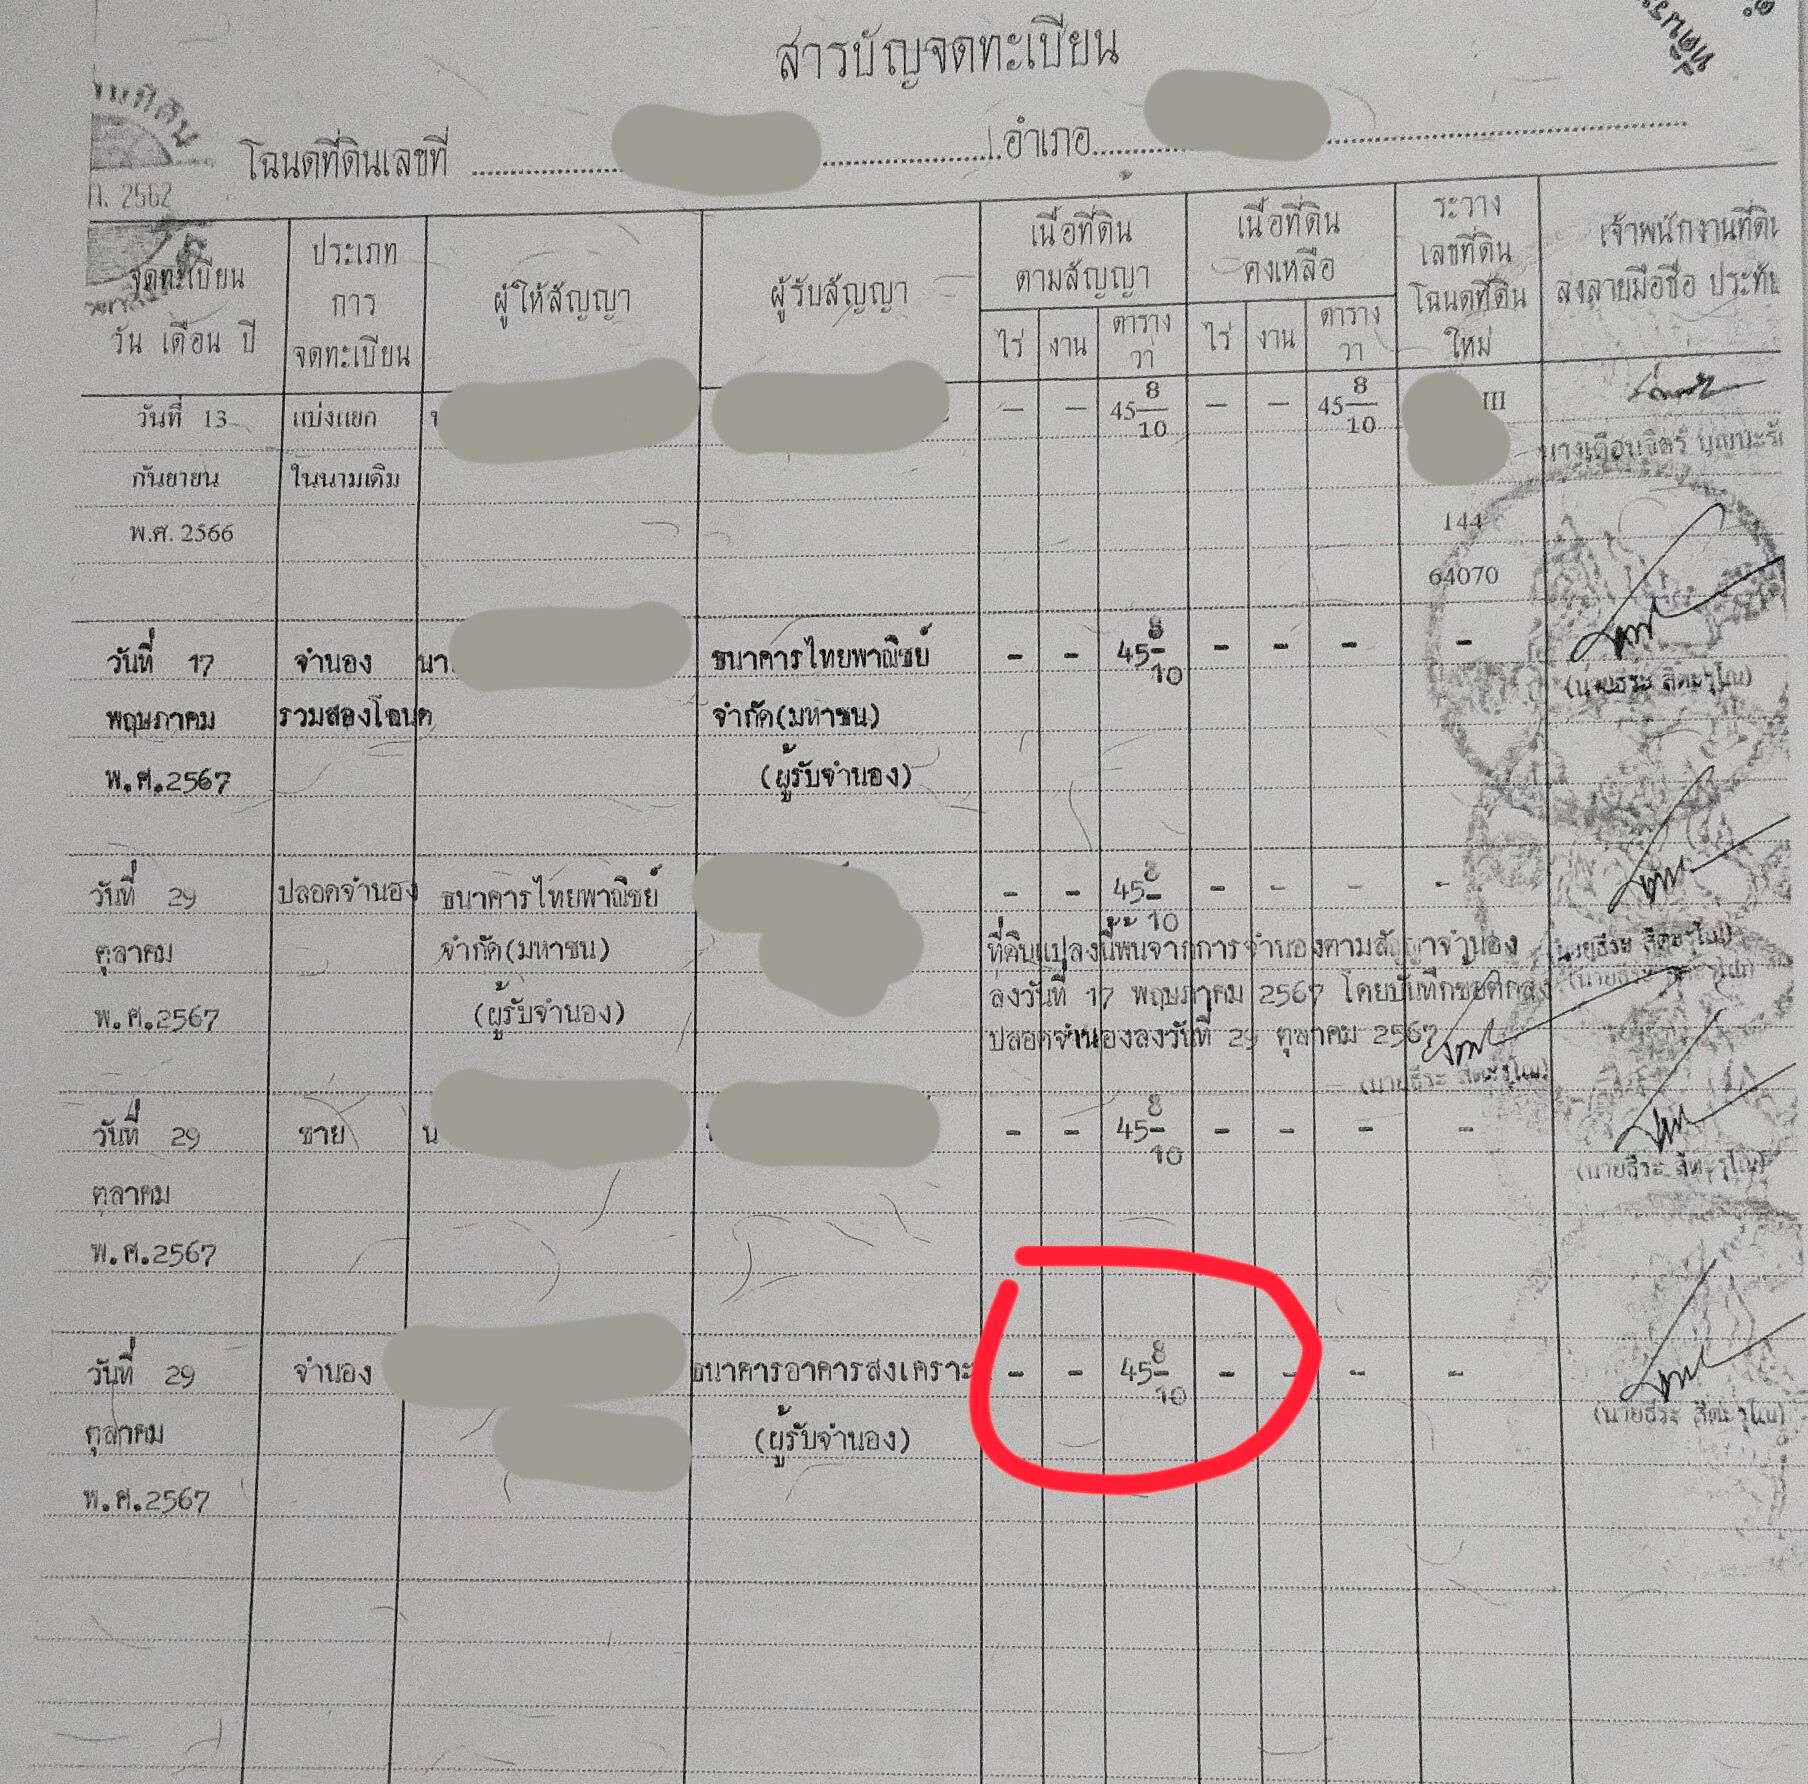 สารบัญจดทะเบียน
โฉนดที่ดินเลขที่ อำเภอ
ก. 2562
จดทะเบียน วัน เดือน ปี
ประเภท การ จดทะเบียน
ผู้ให้สัญญา
ผู้รับสัญญา
เนื้อที่ดิน ตามสัญญา
เนื้อที่ดิน คงเหลือ
ระวาง เลขที่ดิน โฉนดที่ดิน ใหม่
เจ้าพนักงานที่ดิน ลงลายมือชื่อ ประทับ
ไร่ งาน ตาราง วา ไร่ งาน ตาราง วา
วันที่ 13 แบ่งแยก - - 45 8/10 - - 45 8/10 III
กันยายน ในนามเดิม
พ.ศ. 2566 144
64070
วันที่ 17 จำนอง นา ธนาคารไทยพาณิชย์ - - 45 8/10 - - - -
พฤษภาคม รวมสองโฉนด จำกัด(มหาชน)
พ.ศ.2567 (ผู้รับจำนอง)
วันที่ 29 ปลอดจำนอง ธนาคารไทยพาณิชย์ - - 45 8/10 - - - -
ตุลาคม จำกัด(มหาชน) ที่ดินแปลงนี้พ้นจากการจำนองตามสัญญาจำนอง
พ.ศ.2567 (ผู้รับจำนอง) ลงวันที่ 17 พฤษภาคม 2567 โดยบันทึกข้อตกลง
ปลอดจำนองลงวันที่ 29 ตุลาคม 2567
วันที่ 29 ขาย น - - 45 8/10 - - - -
ตุลาคม
พ.ศ.2567
วันที่ 29 จำนอง ธนาคารอาคารสงเคราะ - - 45 8/10 - - - -
ตุลาคม (ผู้รับจำนอง)
พ.ศ.2567